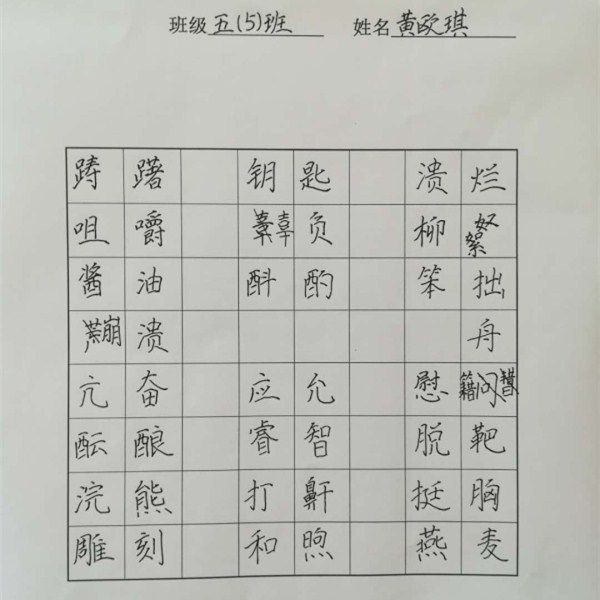 班级五(5)班 姓名黄欧琪
踌躇 钥匙 溃烂
咀嚼 辜负 柳絮
酱油 斟酌 笨拙
崩溃 舟
亢奋 应允 慰问
酝酿 睿智 脱靶
浣熊 打鼾 挺胸
雕刻 和煦 燕麦